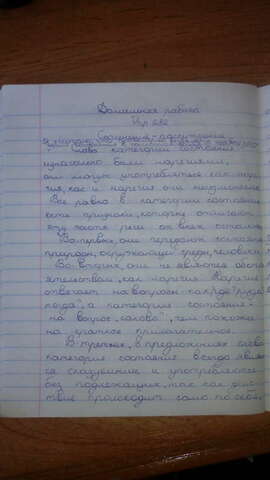 Домашняя работа
Упр 282
Слова категории состояния
изначально были наречиями,
они могут употребляться как наре
чия, как и наречия они неизменяемые.
Все равно в категории состояния
есть признаки, которые отличают
эту часть речи от всех остальных
Во-первых, они передают состояние
природы, окружающей среды, человека.
Во вторых, они не являются обсто
ятельством, как наречия. Наречия
отвечает на вопросы как? где? куда?
когда?, а категория состояния -
на вопрос "каково", чем похожи
на краткое прилагательное.
В-третьих, в предложениях слово
категории состояние всегда являет
ся сказуемым и употребляется
без подлежащих, так как дейс
твие происходит само по себе.